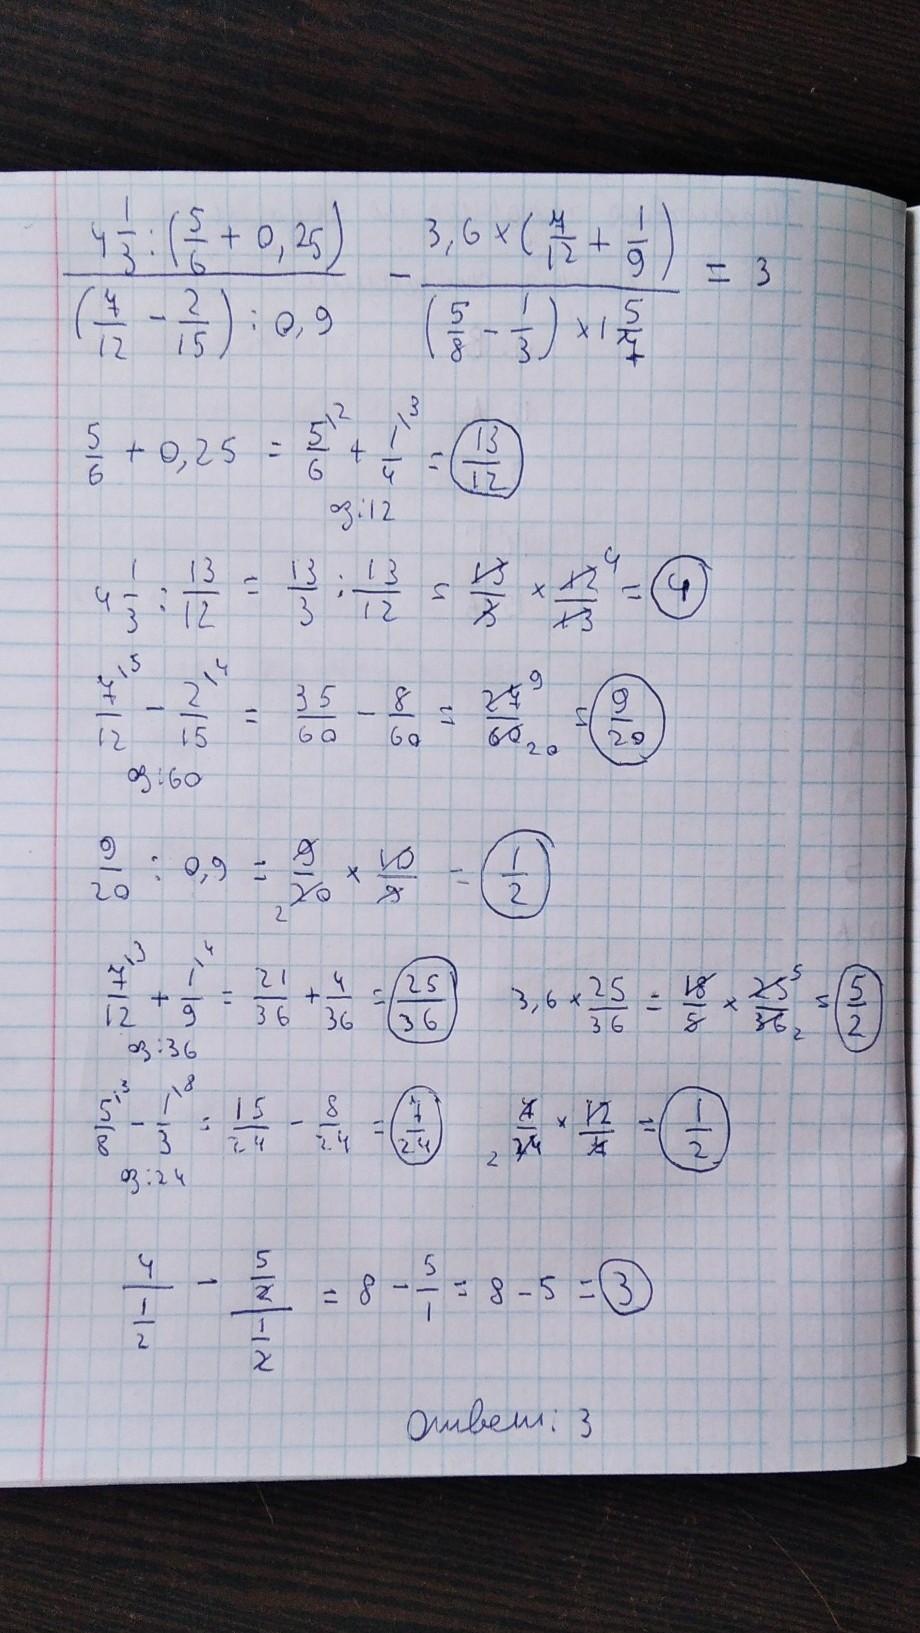 (4 1/3 : (5/6 + 0,25)) / ((7/12 - 2/15) : 0,9) - (3,6 × (7/12 + 1/9)) / ((5/8 - 1/3) × 1 5/7) = 3
5/6 + 0,25 = 5/6 ,2 + 1/4 ,3 = 13/12
оз:12
4 1/3 : 13/12 = 13/3 : 13/12 = 13/3 × 12/13 4 = 4
7/12 ,5 - 2/15 ,4 = 35/60 - 8/60 = 27/60 9 20 = 9/20
оз:60
9/20 : 0,9 = 9/20 2 × 10/9 = 1/2
7/12 ,3 + 1/9 ,4 = 21/36 + 4/36 = 25/36 3,6 × 25/36 = 18/5 × 25/36 5 2 = 5/2
оз:36
5/8 ,3 - 1/3 ,8 = 15/24 - 8/24 = 7/24 2 7/24 × 12/7 = 1/2
оз:24
4/(1/2) - (5/2)/(1/2) = 8 - 5/1 = 8 - 5 = 3
Ответ: 3